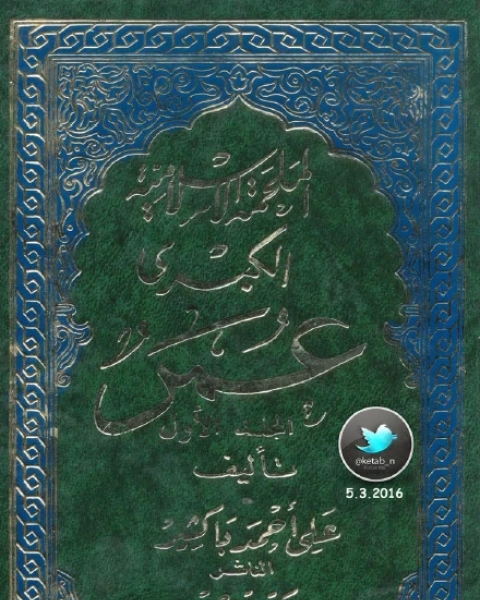 الملحمة الإسلامية
الكبرى
عمر
المجلد الأول
تأليف
@ketab_n
5.3.2016
علي أحمد باكثير
الناشر